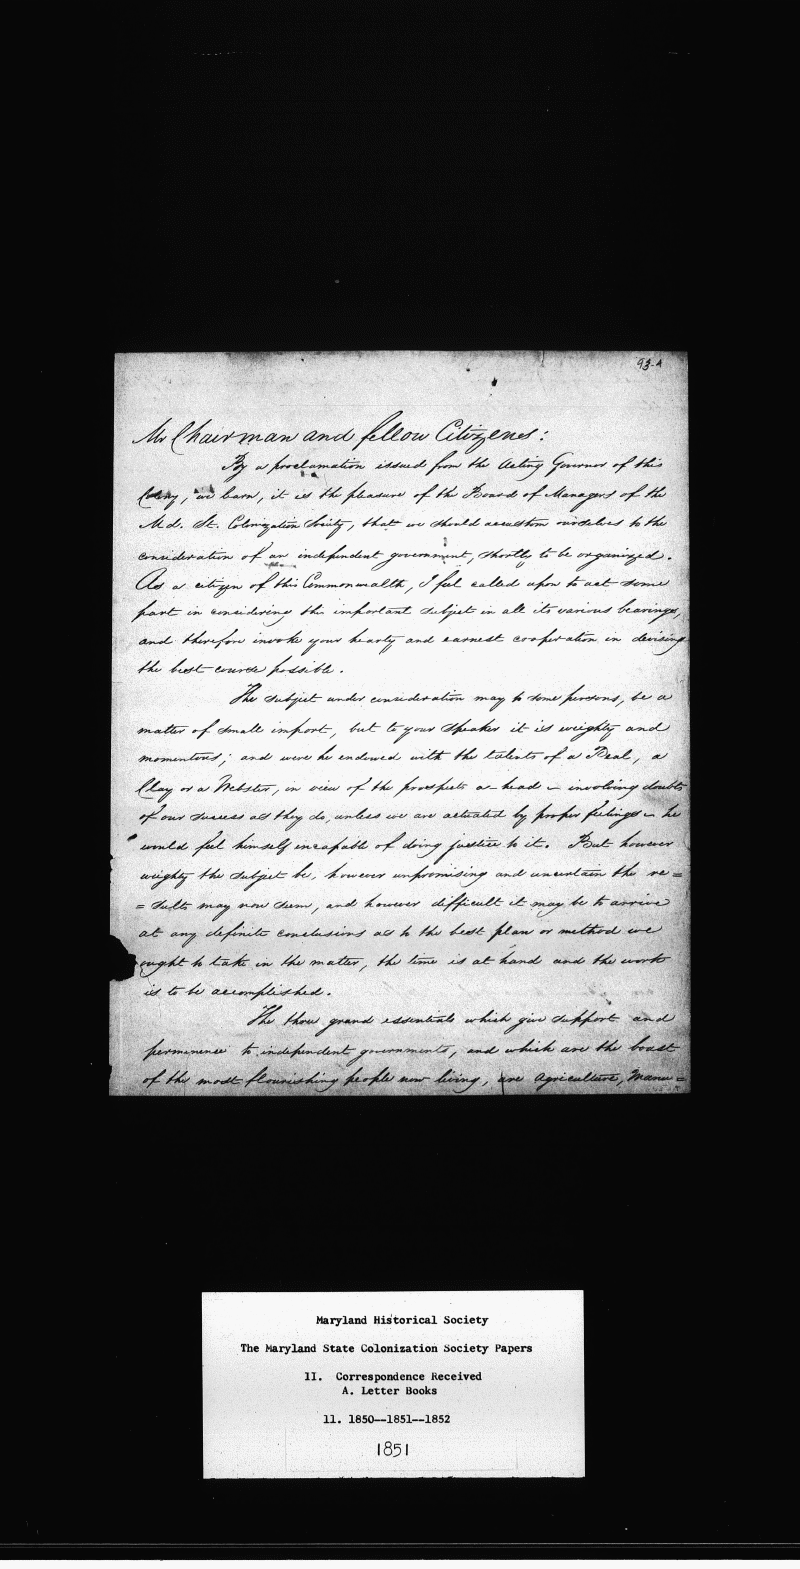 93-A
Mr Chairman and fellow Citizens:
By a proclamation issued from the Acting Governor of this
Colony, we learn, it is the pleasure of the Board of Managers of the
Md. St. Colonization Society, that we should accustom ourselves to the
consideration of an independent government, shortly to be organized.
As a citizen of this Commonwealth, I feel called upon to act some
part in considering this important subject in all its various bearings,
and therefore invoke your hearty and earnest cooperation in devising
the best course possible.
The subject under consideration may to some persons, be a
matter of small import, but to your speaker it is weighty and
momentous; and were he endowed with the talents of a Peal, a
Clay or a Webster, in view of the prospects a-head – involving doubts
of our success as they do, unless we are actuated by proper feelings – he
would feel himself incapable of doing justice to it. But however
weighty the subject be, however unpromising and uncertain the re=
=sults may now seem, and however difficult it may be to arrive
at any definite conclusions as to the best plan or method we
ought to take in the matter, the time is at hand and the work
is to be accomplished.
The three grand essentials which give support and
permanence to independent governments, and which are the boast
of the most flourishing people now living, are Agriculture, Manu=
Maryland Historical Society
The Maryland State Colonization Society Papers
11. Correspondence Received
A. Letter Books
11. 1850--1851--1852
1851